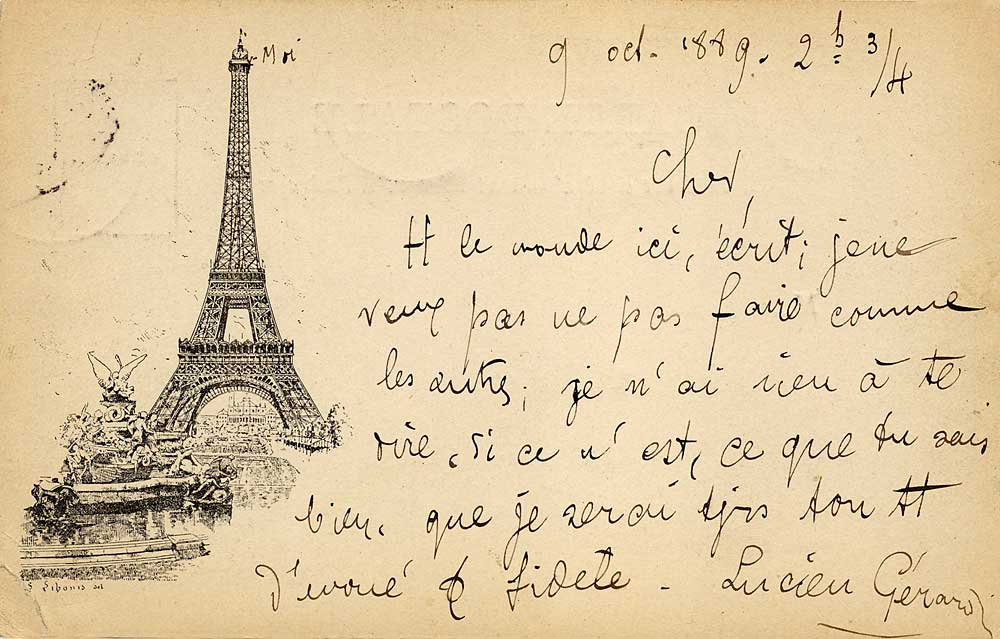 Moi
9 oct. 1889. 2h 3/4
Cher,
Tt le monde ici, écrit; je ne
veux pas ne pas faire comme
les autres; je n'ai rien à te
dire, si ce n'est, ce que tu sais
bien, que je serai tjrs ton tt
dévoué & fidèle - Lucien Gérard
Libonis del